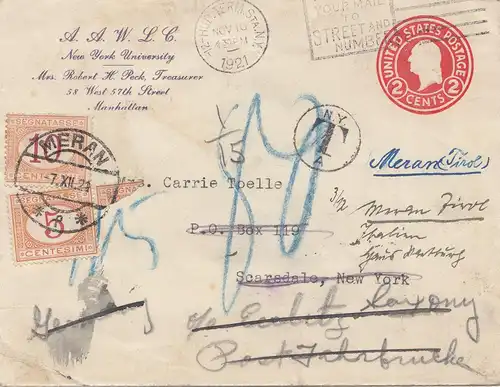 A. A. W. L. C.
New York University
Mrs. Robert H. Peck, Treasurer
58 West 57th Street
Manhattan
N.Y.
NOV 16
4 PM
1921
YOUR MAIL
TO
STREET AND
NUMBER
UNITED STATES POSTAGE
2 CENTS 2
SEGNATASSE
10
CENTESIMI
MERAN
-7.XII.21
* 8 *
5
CENTESIMI
N.Y.
T
15
Meran (Tirol)
s. Carrie Toelle
3/2
Meran Tirol
P.O. Box 119
Italien
Haus
Scarsdale, New York
Germany
c/o
Saxony
Post